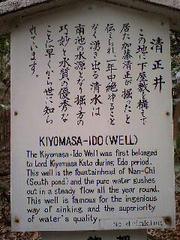 清正井
この地に下屋敷を構えて
居た加藤清正が掘ったと
伝られ一年中絶ゆること
なく湧き出る清水は
南池の水源となり掘方の
巧妙と水質の優秀な
ことに早くから世に知ら
れています。
KIYOMASA-IDO (WELL)
The Kiyomasa-Ido Well was first belonged
to Lord Kiyomasa Kato during Edo period.
This well is the fountainhead of Nan-Chi
(South pond) and the pure water gushes
out in a steady flow all the year round.
This well is famous for the ingenious
way of sinking and the superiority
of water's quality.